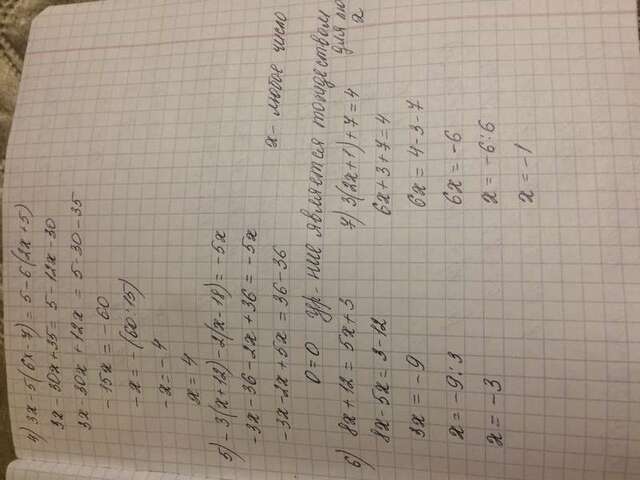 4) 3x-5(6x-7)=5-6(2x+5)
3x-30x+35=5-12x-30
3x-30x+12x=5-30-35
-15x=-60
-x=-(60:15)
-x=-4
x=4
5) -3(x+12)-2(x-18)=-5x
-3x-36-2x+36=-5x
-3x-2x+5x=36-36
x- любое число
0=0 ур-ние является тождеством
для лю
x
6) 8x+12=5x+3
8x-5x=3-12
3x=-9
x=-9:3
x=-3
7) 3(2x+1)+7=4
6x+3+7=4
6x=4-3-7
6x=-6
x=-6:6
x=-1